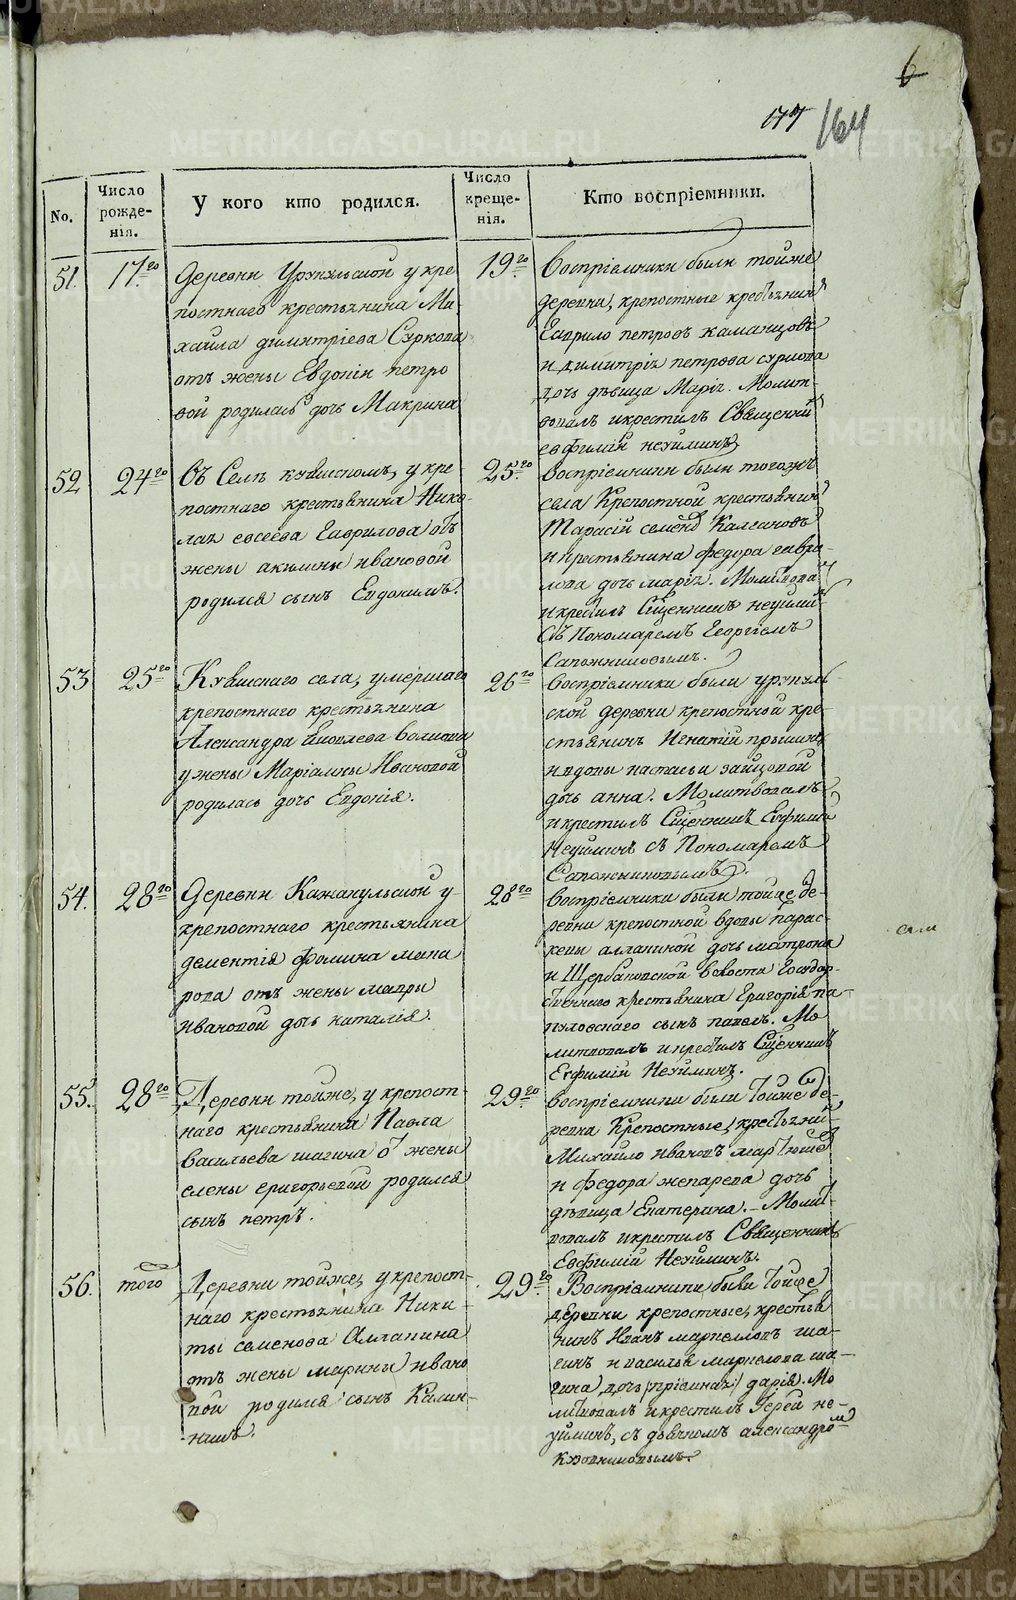 6
177 164
No. Число рожденія. У кого кто родился. Число крещенія. Кто воспріемники.
51. 17го
Деревни Урукульской у кре
постнаго крестьянина Ми
хаила димитріева Суркова
отъ жены Евдокіи петро
вой родилась дочь Макрина
19го
воспріемники были тойже
деревни, крепостные крестьянинъ
Гаврило петровъ каманцовъ
и димитрія петрова суркова
дочь дѣвица Марія. Молит-
вовалъ и крестилъ Священникъ
евфимій неуйминъ
52 24го
Въ Селѣ куяшскомъ, у кре-
постнаго крестьянина Нико-
лая евсеева Гаврилова отъ
жены акилины ивановой
родился сынъ Евдокимъ.
25го
воспріемники были тогожъ
села Крепостной крестьянинъ
Тарасій семеновъ
и крестьянина федора гаври
лова дочь марія. Молитвова
и крестилъ Сщенникъ неуйми
Съ Пономаремъ Георгіемъ
Сапожниковымъ.
53 25го
Куяшскаго села, умершаго
крепостнаго крестьянина
Александра Яковлева
у жены Маріамны Ивановой
родилась дочь Евдокія.
26го
воспріемники были урукуль-
ской деревни крепостной кре-
стьянинъ Игнатій
и вдовы настасьи зайцовой
дочь анна. Молитвовалъ
и крестилъ Сщенникъ Евфимій
Неуйминъ съ Пономаремъ
Сапожниковымъ.
54. 28го
Деревни Кажакульской у
крепостнаго крестьянина
дементія фомина мака
рова отъ жены мавры
ивановой дочь наталія.
28го
воспріемники были тойже де-
ревни крепостной вдовы парас-
кевы алланиной дочь матрона
и Щербаковской волости Государ-
ственнаго крестьянина Григорія па-
сынъ павелъ. Мо
литвовалъ и крестилъ Сщенникъ
Евфимій Неуйминъ.
55. 28го
Деревни тойже, у крепост-
наго крестьянина Павла
Васильева шагина отъ жены
елены григорьевой родился
сынъ петръ.
29го
воспріемники были тойже де-
ревни Крепостные, крестьянинъ
Михайло ивановъ
и Федора жепарева дочь
дѣвица Екатерина. Молит
вовалъ и крестилъ Священникъ
Евфимій Неуйминъ.
56. того
Деревни тойже, у крепост-
наго крестьянина Ники-
ты семенова Алланина
отъ жены марины ивано
вой родился сынъ Калин-
никъ.
29го
Воспріемники были тойже
деревни крепостные, крестья
нинъ Иванъ маркелловъ ша-
гинъ и василья маркелова ша-
гина, дочь дарія. Мо
литвовалъ и крестилъ Іерей не-
уйминъ, съ дьячкомъ александром